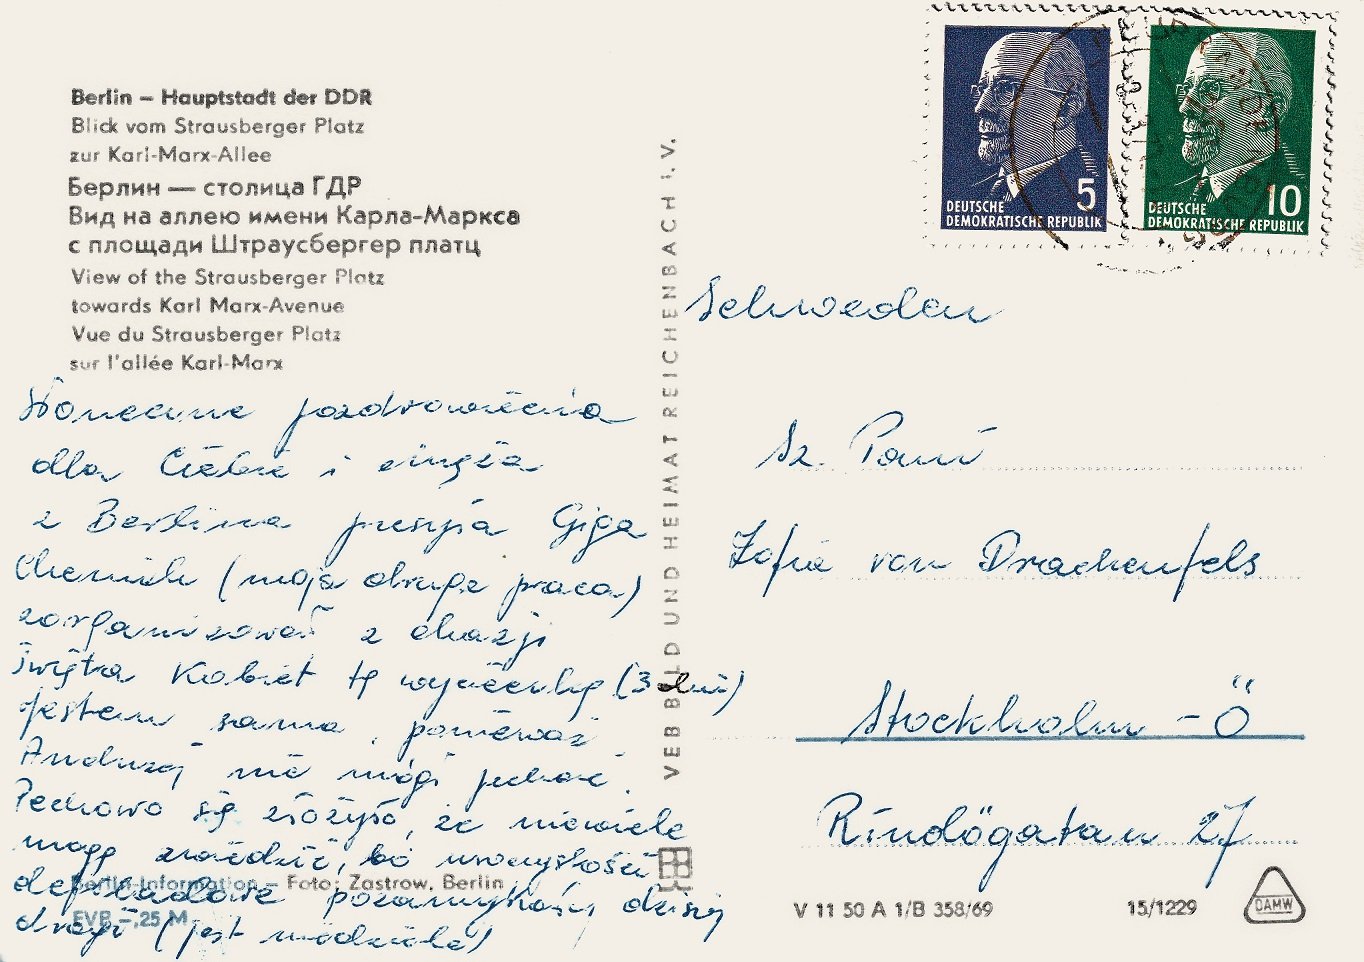 Berlin – Hauptstadt der DDR
Blick vom Strausberger Platz
zur Karl-Marx-Allee
Берлин — столица ГДР
Вид на аллею имени Карла-Маркса
с площади Штраусбергер платц
View of the Strausberger Platz
towards Karl Marx-Avenue
Vue du Strausberger Platz
sur l'allée Karl-Marx
Słoneczne pozdrowienia
dla Ciebie i
z Berlina przesyła Giga
Chemik (moja druga praca)
zorganizował z okazji
Święta Kobiet tę wycieczkę (3 dni)
Jestem sama, ponieważ
Andrzej nie mógł jechać.
Pechowo się złożyło, że niewiele
mogę zwiedzić, bo uroczystości
pozamykały dzisiaj
drogi (jest niedziela)
Berlin-Information – Foto: Zastrow, Berlin
EVP –,25 M
VEB BILD UND HEIMAT REICHENBACH I. V.
5
DEUTSCHE
DEMOKRATISCHE REPUBLIK
10
DEUTSCHE
DEMOKRATISCHE REPUBLIK
Schweden
Sz. Pani
Zofia von Drachenfels
Stockholm – Ö
Rindögatan 27
V 11 50 A 1/B 358/69
15/1229
DAMW